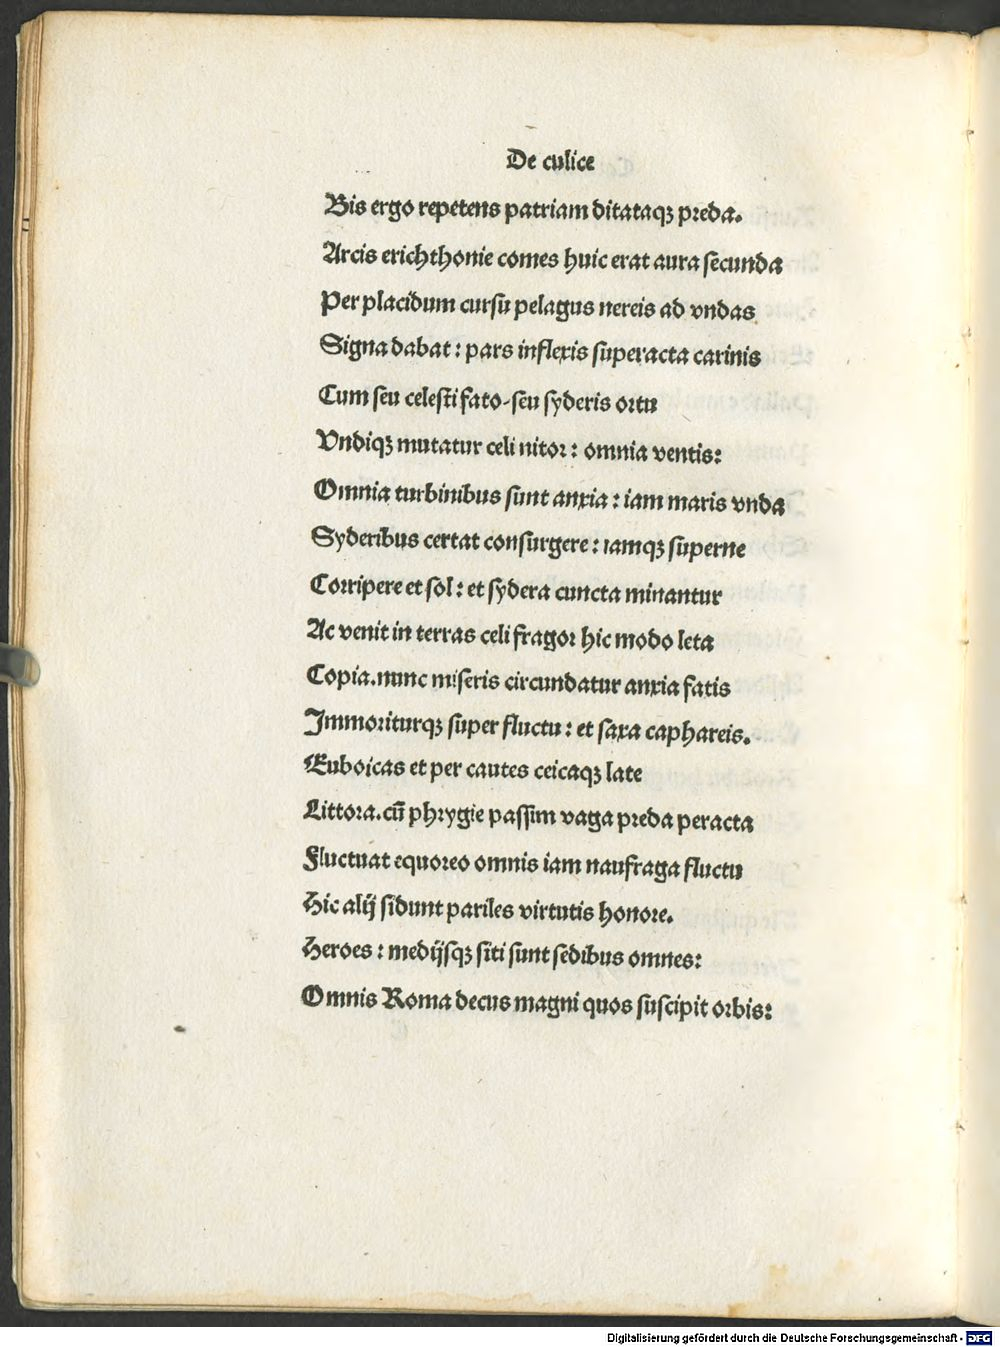 De culice
Bis ergo repetens patriam ditataqꝫ preda.
Arcis erichthonie comes huic erat aura secunda
Per placidum cursu pelagus nereis ad vndas
Signa dabat: pars inflexis superacta carinis
Cum seu celesti fato-seu syderis ortu
Vndiqꝫ mutatur celi nitor: omnia ventis:
Omnia turbinibus sunt anxia: iam maris vnda
Syderibus certat consurgere: iamqꝫ superne
Corripere et sol: et sydera cuncta minantur
Ac venit in terras celi fragor hic modo leta
Copia.nunc miseris circundatur anxia fatis
Immoriturqꝫ super fluctu: et saxa caphareis.
Euboicas et per cautes ceicaqꝫ late
Littora.cū phrygie passim vaga preda peracta
Fluctuat equoreo omnis iam naufraga fluctu
Hic alij sidunt pariles virtutis honore.
Heroes: medijsqꝫ siti sunt sedibus omnes:
Omnis Roma decus magni quos suscipit orbis:
Digitalisierung gefördert durch die Deutsche Forschungsgemeinschaft - DFG